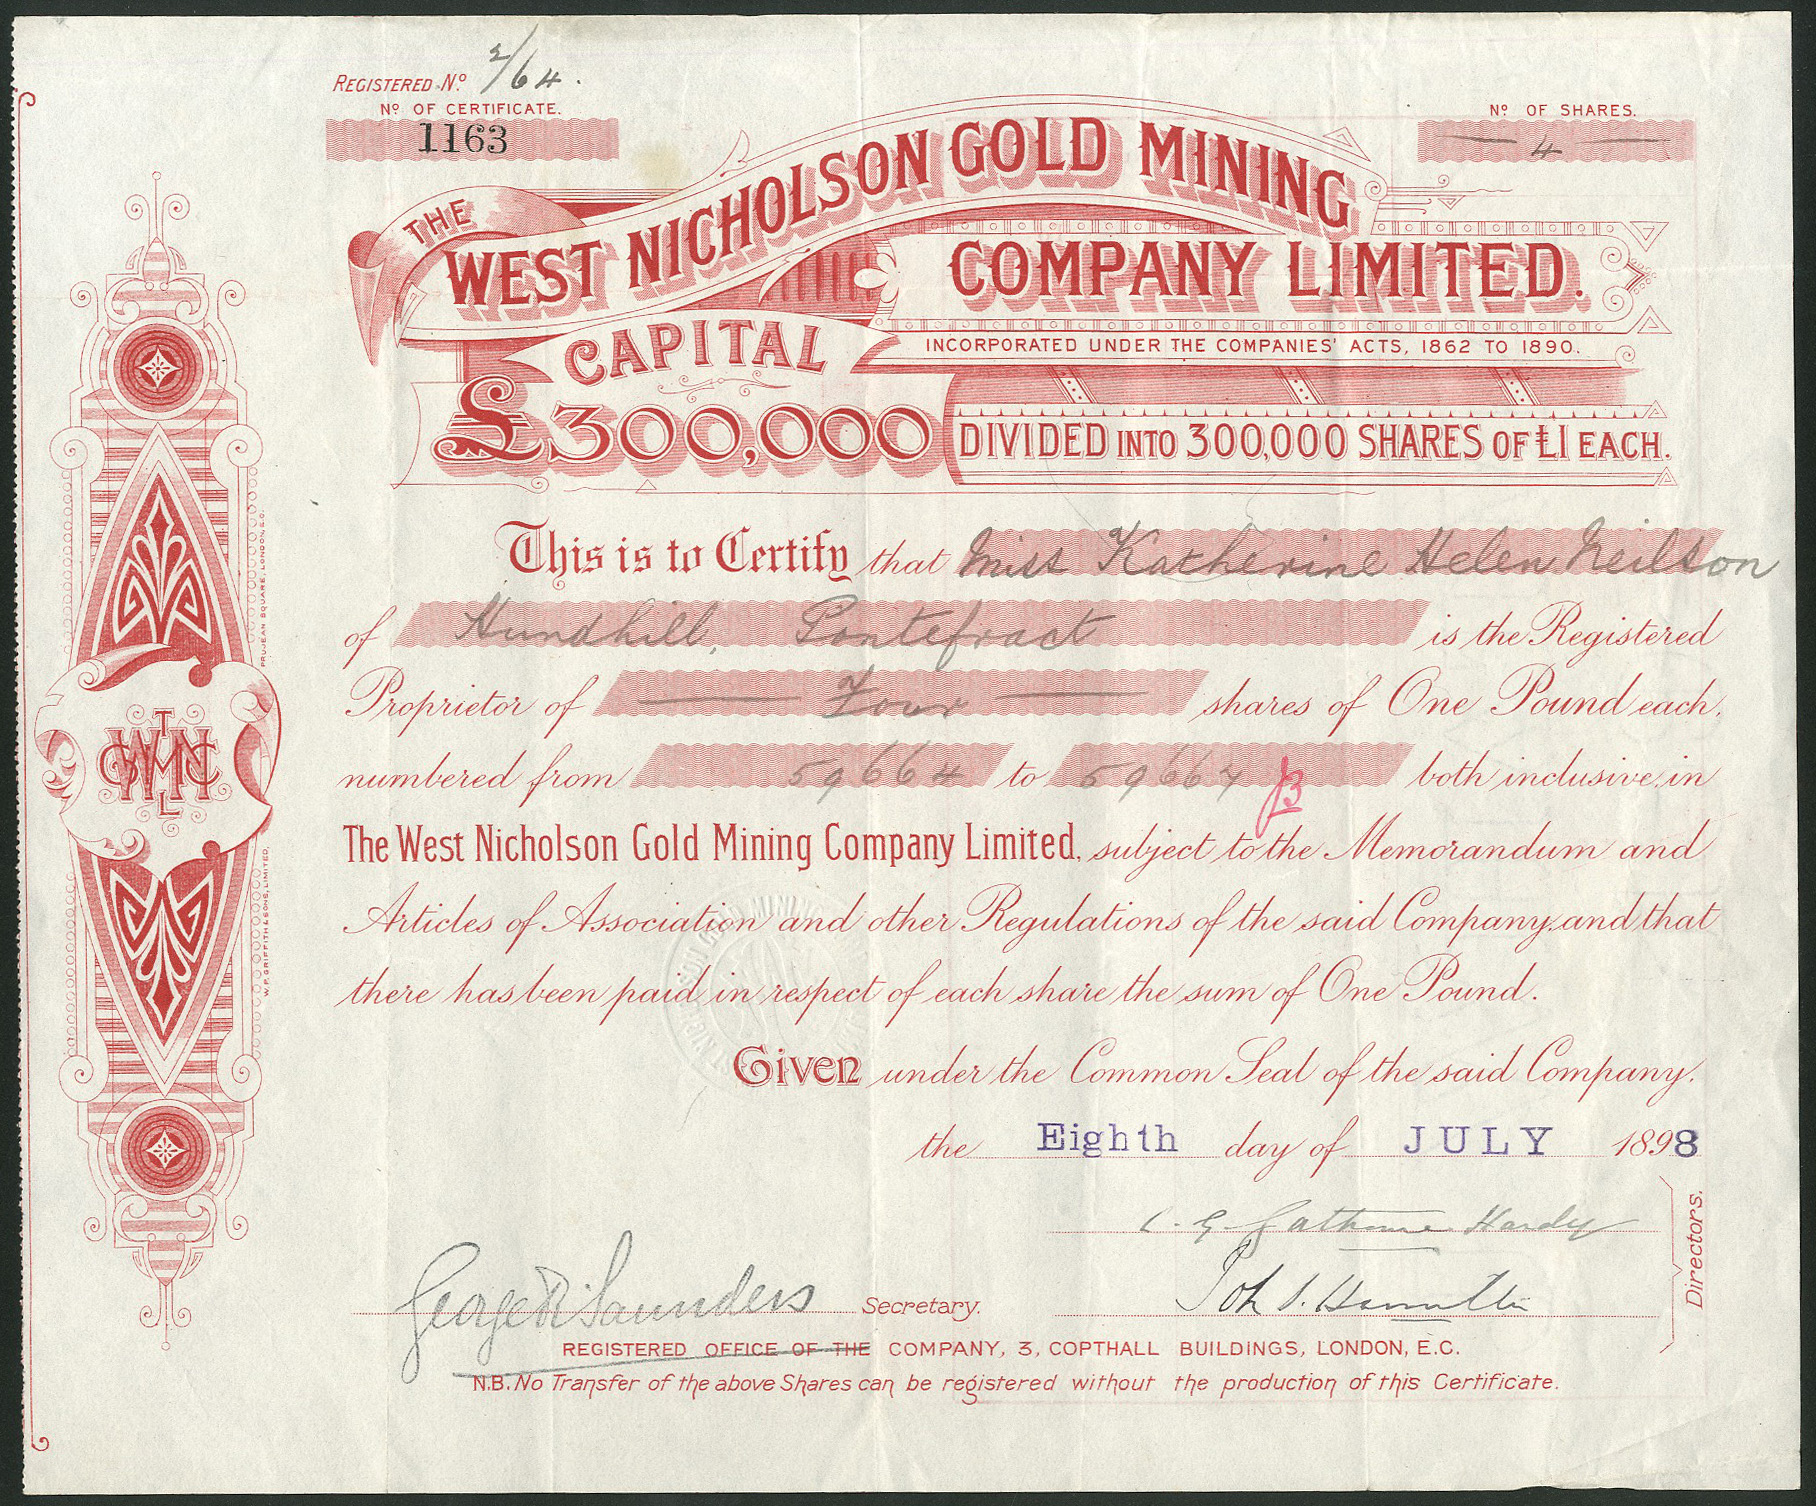 REGISTERED No. 2/64.
No. OF CERTIFICATE.
1163
No. OF SHARES.
4
THE
WEST NICHOLSON GOLD MINING
COMPANY LIMITED.
INCORPORATED UNDER THE COMPANIES' ACTS, 1862 TO 1890.
CAPITAL
£300,000
DIVIDED INTO 300,000 SHARES OF £1 EACH.
This is to Certify that Miss Katherine Helen Neilson
of Hundhill, Pontefract is the Registered
Proprietor of Four shares of One Pound each,
numbered from 59664 to 59667 both inclusive, in
The West Nicholson Gold Mining Company Limited, subject to the Memorandum and
Articles of Association and other Regulations of the said Company, and that
there has been paid in respect of each share the sum of One Pound.
Given under the Common Seal of the said Company.
the Eighth day of JULY 1898
C. G. Gathorne Hardy
Directors.
George R Saunders Secretary.
REGISTERED OFFICE OF THE COMPANY, 3, COPTHALL BUILDINGS, LONDON, E.C.
N.B. No Transfer of the above Shares can be registered without the production of this Certificate.
W.P. GRIFFITH & SONS, LIMITED,
PRUJEAN SQUARE, LONDON E.C.